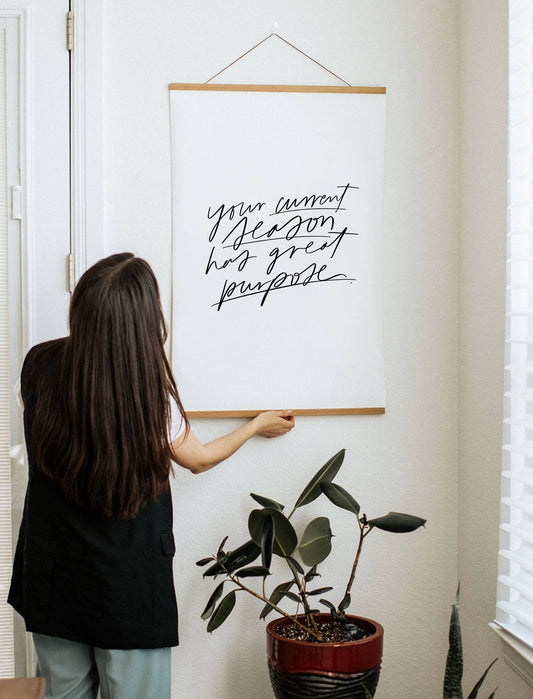 your current
season
has great
purpose.